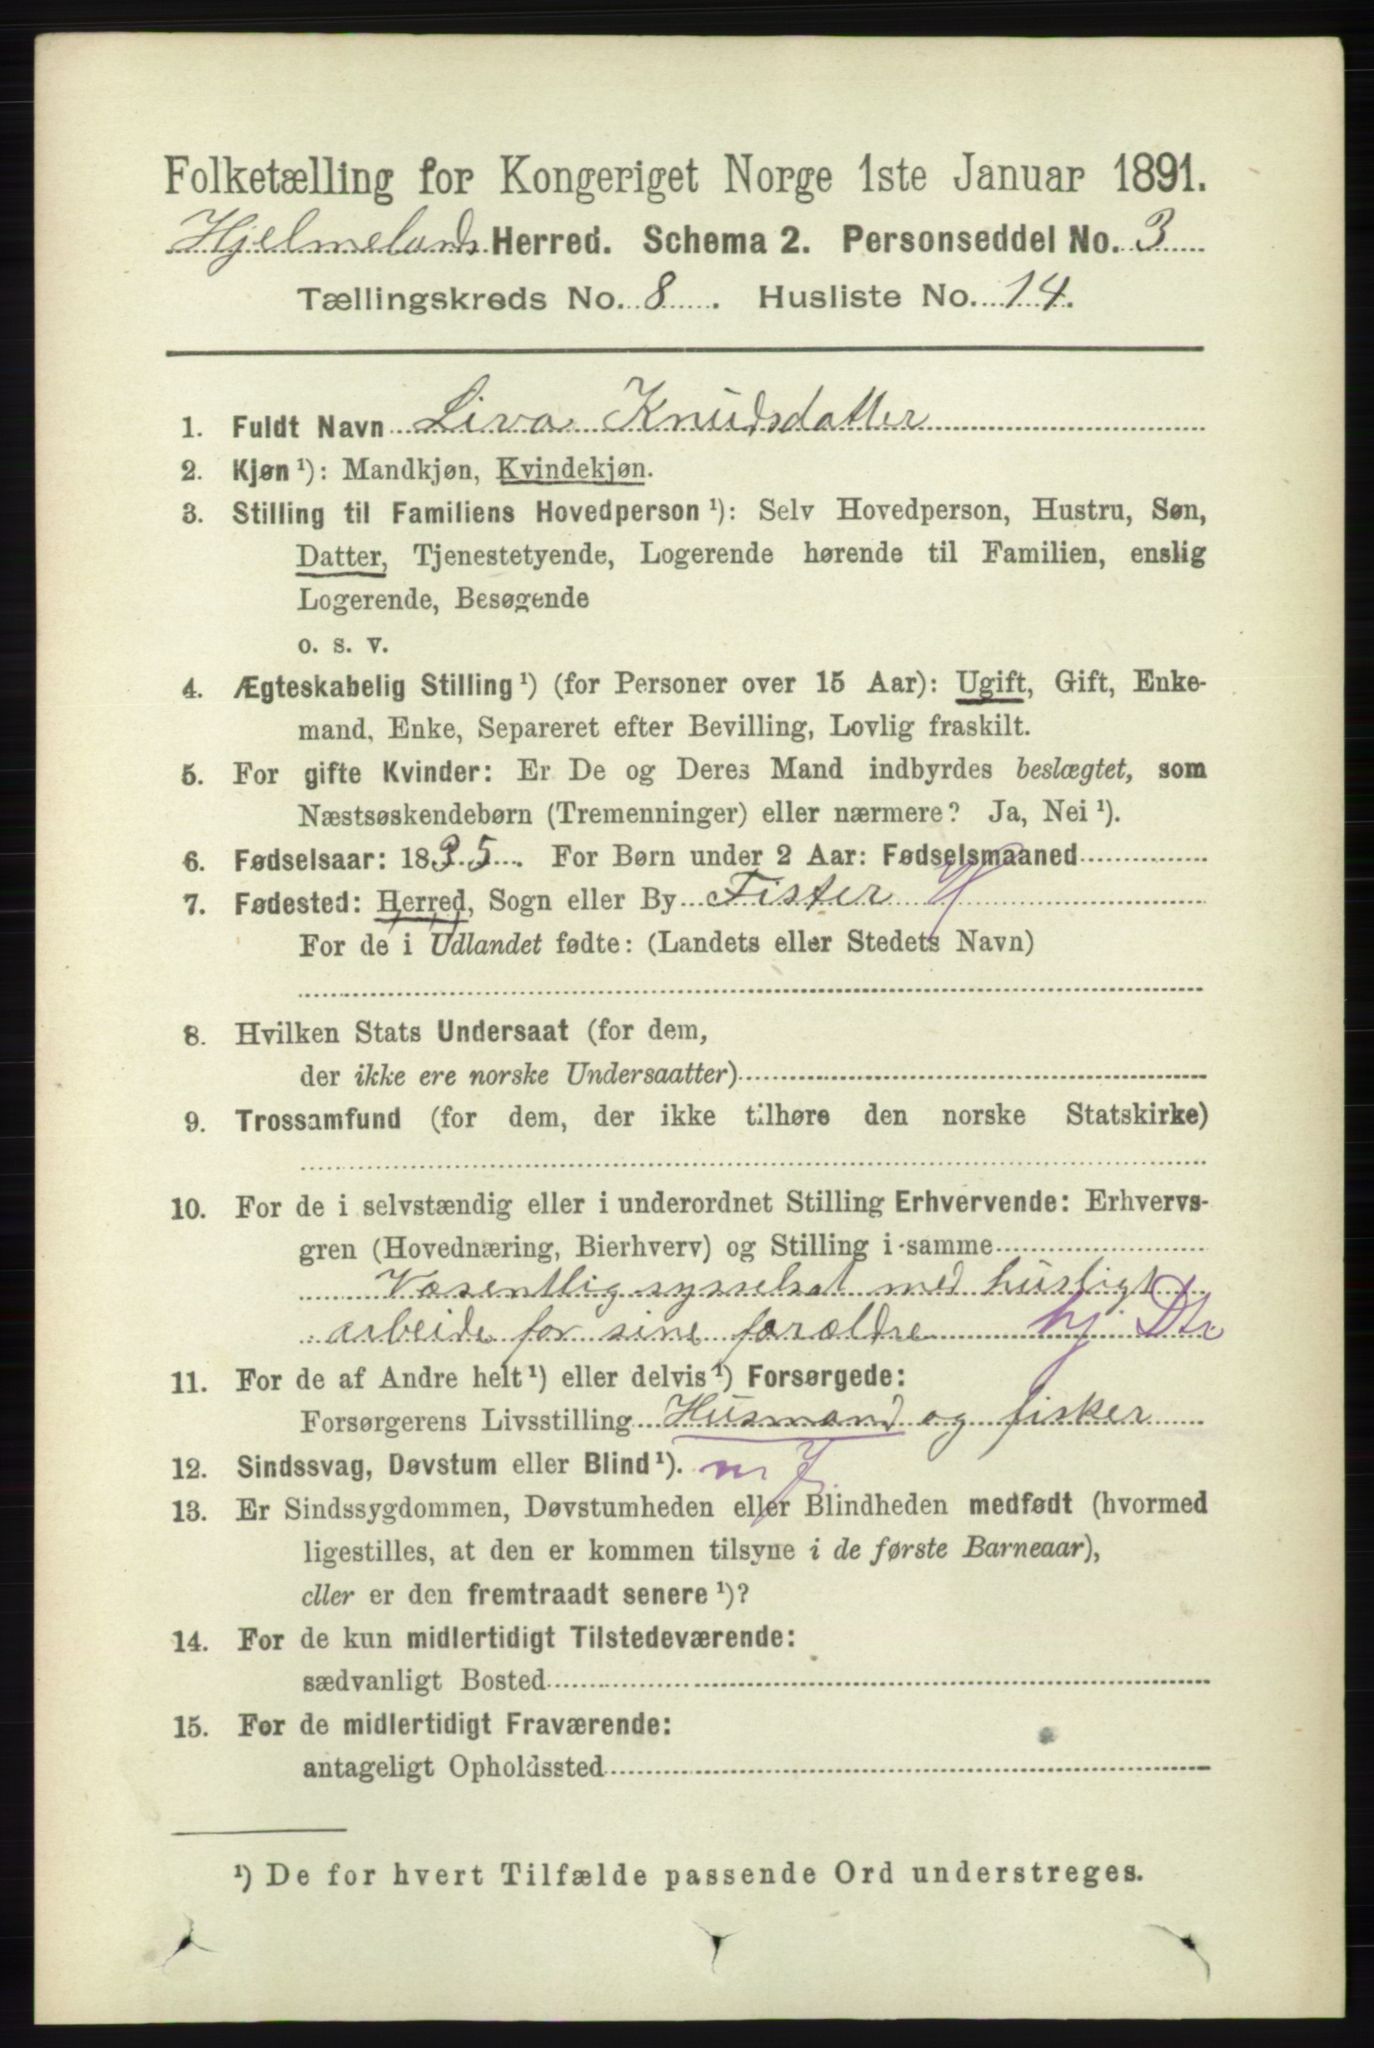 Folketælling for Kongeriget Norge 1ste Januar 1891.
Hjelmelands Herred. Schema 2. Personseddel No. 3
Tællingskreds No. 8. Husliste No. 14.
1. Fuldt Navn Liva Knudsdatter
2. Kjøn ¹): Mandkjøn, Kvindekjøn.
3. Stilling til Familiens Hovedperson ¹): Selv Hovedperson, Hustru, Søn,
Datter, Tjenestetyende, Logerende hørende til Familien, enslig
Logerende, Besøgende
o. s. v.
4. Ægteskabelig Stilling ¹) (for Personer over 15 Aar): Ugift, Gift, Enke-
mand, Enke, Separeret efter Bevilling, Lovlig fraskilt.
5. For gifte Kvinder: Er De og Deres Mand indbyrdes beslægtet, som
Næstsøskendebørn (Tremenninger) eller nærmere? Ja, Nei ¹).
6. Fødselsaar: 1835. For Børn under 2 Aar: Fødselsmaaned
7. Fødested: Herred, Sogn eller By Fister
For de i Udlandet fødte: (Landets eller Stedets Navn)
8. Hvilken Stats Undersaat (for dem,
der ikke ere norske Undersaatter)
9. Trossamfund (for dem, der ikke tilhøre den norske Statskirke)
10. For de i selvstændig eller i underordnet Stilling Erhvervende: Erhvervs-
gren (Hovednæring, Bierhverv) og Stilling i samme
Væsentlig sysselsat med husligt
arbeide for sine forældre hj. Dtr
11. For de af Andre helt ¹) eller delvis ¹) Forsørgede:
Forsørgerens Livsstilling Husmand og fisker
12. Sindssvag, Døvstum eller Blind ¹).
13. Er Sindssygdommen, Døvstumheden eller Blindheden medfødt (hvormed
ligestilles, at den er kommen tilsyne i de første Barneaar),
eller er den fremtraadt senere ¹)?
14. For de kun midlertidigt Tilstedeværende:
sædvanligt Bosted
15. For de midlertidigt Fraværende:
antageligt Opholdssted
¹) De for hvert Tilfælde passende Ord understreges.